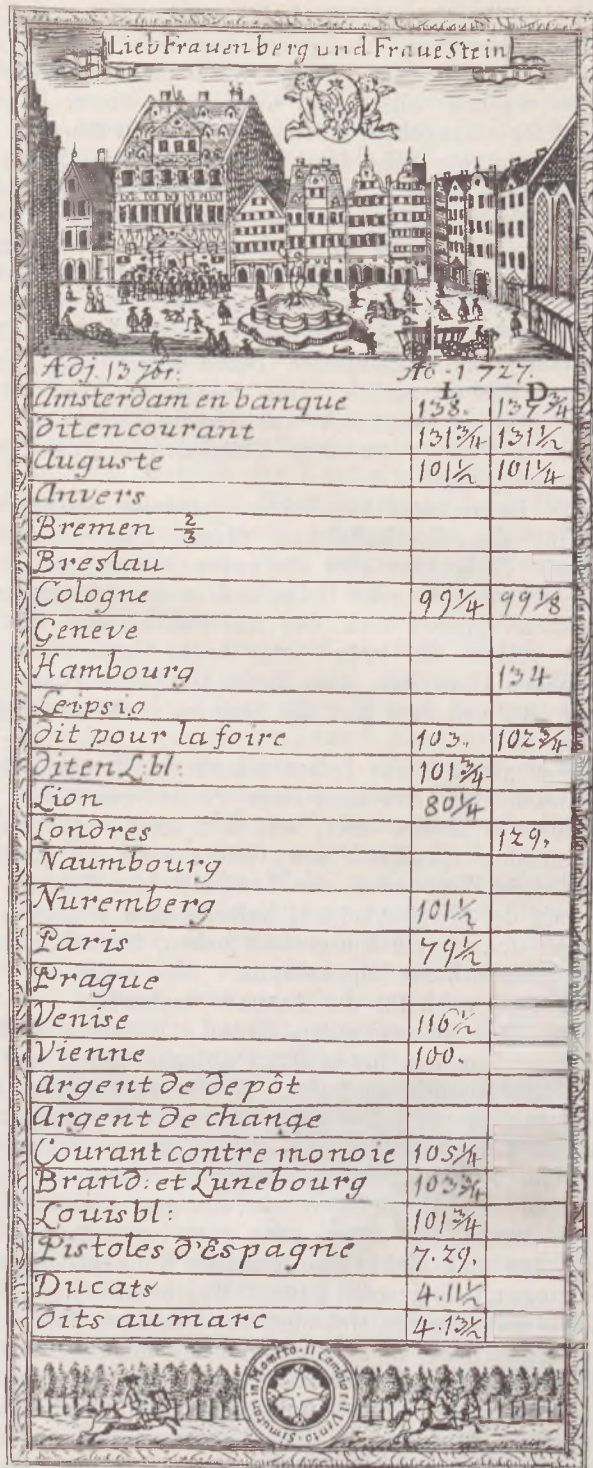 Lieb Frauenberg und Fraue Stein
Adj. 13 7br: Ao. 1727.
L D
Amsterdam en banque 138. 137 3/4
Dit en courant 131 3/4 131 1/2
Auguste 101 1/2 101 1/4
Anvers
Bremen 2/3
Breslau
Cologne 99 1/4 99 1/8
Geneve
Hambourg 134
Leipsig
dit pour la foire 103. 102 3/4
dit en L. bl: 101 3/4
Lion 80 1/4
Londres 129.
Naumbourg
Nuremberg 101 1/2
Paris 79 1/2
Prague
Venise 116 1/2
Vienne 100.
Argent de depôt
Argent de change
Courant contre monoie 105 1/4
Brand: et Lunebourg 103 3/4
Louis bl: 101 3/4
Pistoles d'Espagne 7.29.
Ducats 4.11 1/2
Dits au marc 4.13 1/2
Il Cambio il Vento